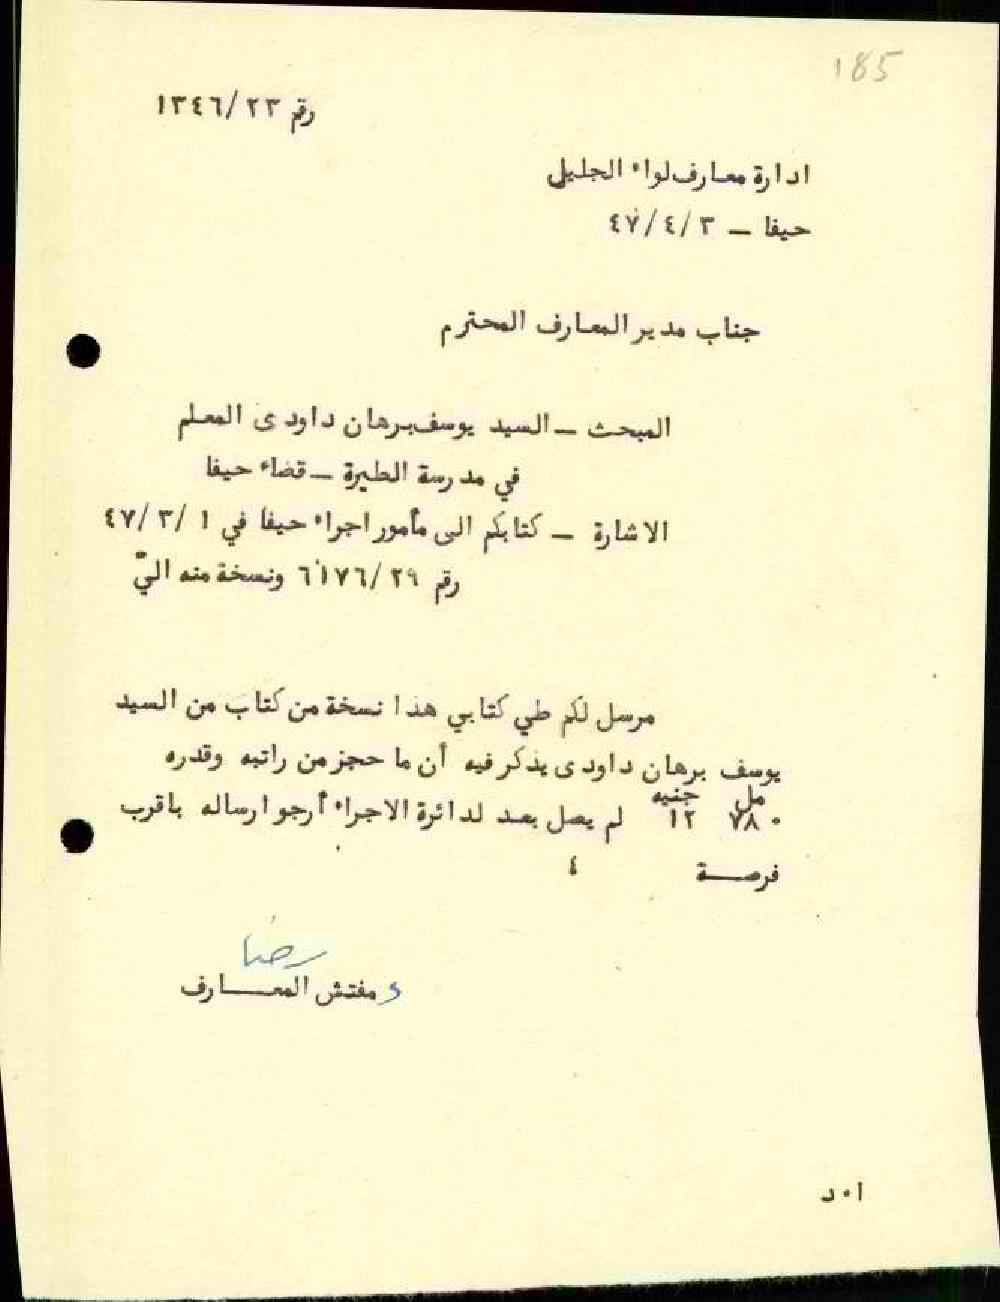 185
رقم ٢٣/ ١٣٤٦
ادارة معارف لواء الجليل
حيفا — ٣ /٤ /٤٧
جناب مدير المعارف المحترم
المبحث — السيد يوسف برهان داودى المعلم
في مدرسة الطيرة — قضاء حيفا
الاشارة — كتابكم الى مأمور اجراء حيفا في ١ /٣ /٤٧
رقم ٢٩ /٦١٧٦ ونسخة منه اليّ
مرسل لكم طي كتابي هذا نسخة من كتاب من السيد
يوسف برهان داودى يذكر فيه أن ما حجز من راتبه وقدره
مل جنيه
٧٨٠ ١٢ لم يصل بعد لدائرة الاجراء أرجو ارساله باقرب
فرصــة ٤
رضا
ع مفتش المعــارف
ا٠د